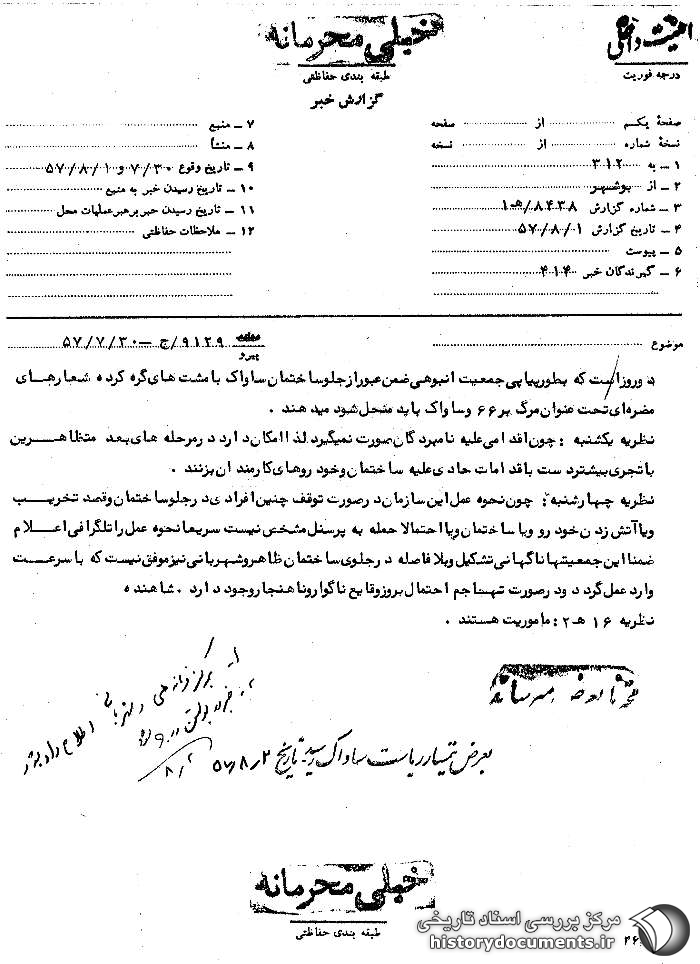 خیلی محرمانه
طبقه بندی حفاظتی
گزارش خبر
امنیت داخلی
درجه فوریت
صفحهٔ یکم از صفحه
نسخهٔ شماره از نسخه
۱ – به ۳۱۲
۲ – از بوشهر
۳ – شماره گزارش ۸۴۳۸/هـ۱
۴ – تاریخ گزارش ۵۷/۸/۰۱
۵ – پیوست
۶ – گیرندگان خبر ۴۱۴
۷ – منبع
۸ – منشأ
۹ – تاریخ وقوع ۷/۳۰ و ۵۷/۸/۱
۱۰ – تاریخ رسیدن خبر به منبع
۱۱ – تاریخ رسیدن خبر برهبر عملیات محل
۱۲ – ملاحظات حفاظتی
موضوع
پیرو ۹۱۲۹/ج – ۵۷/۷/۳۰
دو روز است که بطور پیاپی جمعیت انبوهی ضمن عبور از جلو ساختمان ساواک با مشت های گره کرده شعارهای
مضره ای تحت عنوان مرگ بر ۶۶ و ساواک باید منحل شود میدهند .
نظریه یکشنبه : چون اقدامی علیه نامبردگان صورت نمیگیرد لذا امکان دارد در مرحله های بعد متظاهرین
با تجری بیشتر دست باقدامات حادی علیه ساختمان و خودروهای کارمندان بزنند .
نظریه چهارشنبه : چون نحوه عمل این سازمان در صورت توقف چنین افرادی در جلو ساختمان و قصد تخریب
و یا آتش زدن خودرو و یا ساختمان و یا احتمالا حمله به پرسنل مشخص نیست سریعا نحوه عمل را تلگرافی اعلام
ضمنا این جمعیتها ناگهانی تشکیل و بلافاصله در جلوی ساختمان ظاهر و شهربانی نیز موفق نیست که با سرعت
وارد عمل گردد و در صورت تهاجم احتمال بروز وقایع ناگوار و ناهنجار وجود دارد . شاهنده
نظریه ۱۶ هـ ۲ : ماموریت هستند .
میرساند
اطلاع داده شود
بعرض تیمسار ریاست ساواک رسید تاریخ ۵۷/۸/۲
خیلی محرمانه
طبقه بندی حفاظتی
مرکز بررسی اسناد تاریخی
historydocuments.ir